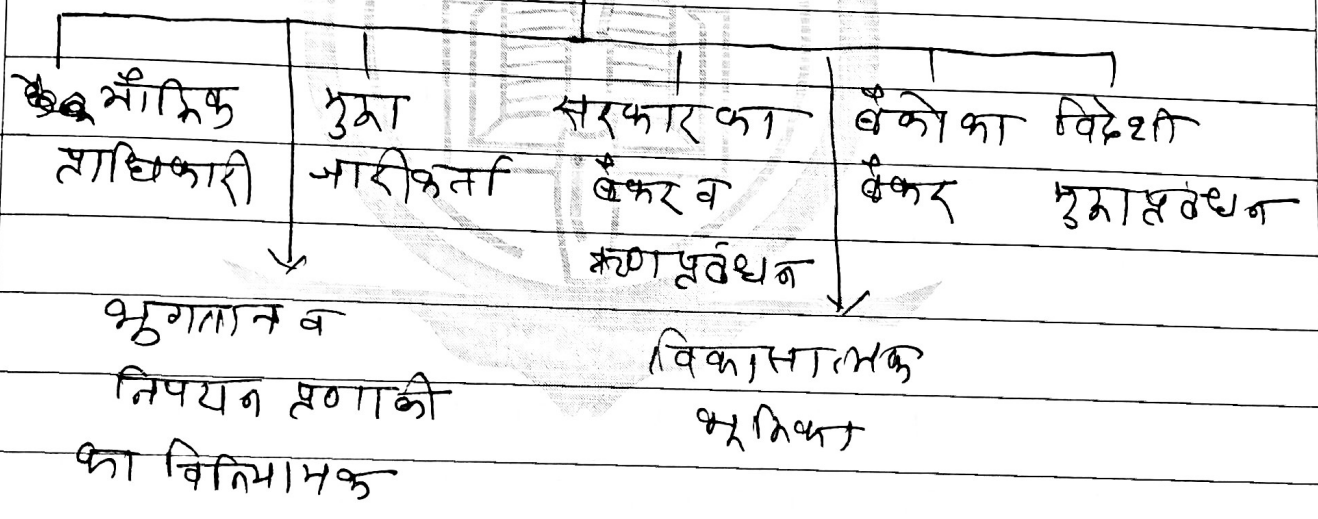 मौद्रिक
प्राधिकारी
मुद्रा
जारीकर्ता
सरकार का
बैंकर व
ऋण प्रबंधन
बैंकों का
बैंकर
विदेशी
मुद्रा प्रबंधन
भुगतान व
निपटान प्रणाली
का विनियामक
विकासात्मक
भूमिका